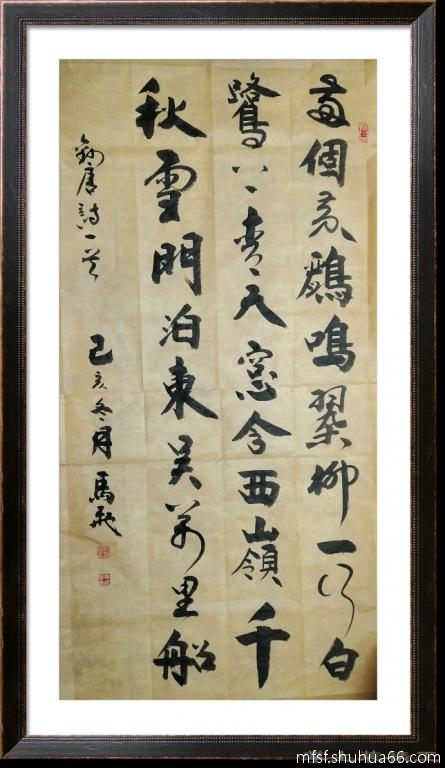 两個黄鸝鳴翠柳一行白
鷺上青天窓含西嶺千
秋雪門泊東吴萬里船
録唐詩一首 己亥冬月 馬
mfsf.shuhua66.com